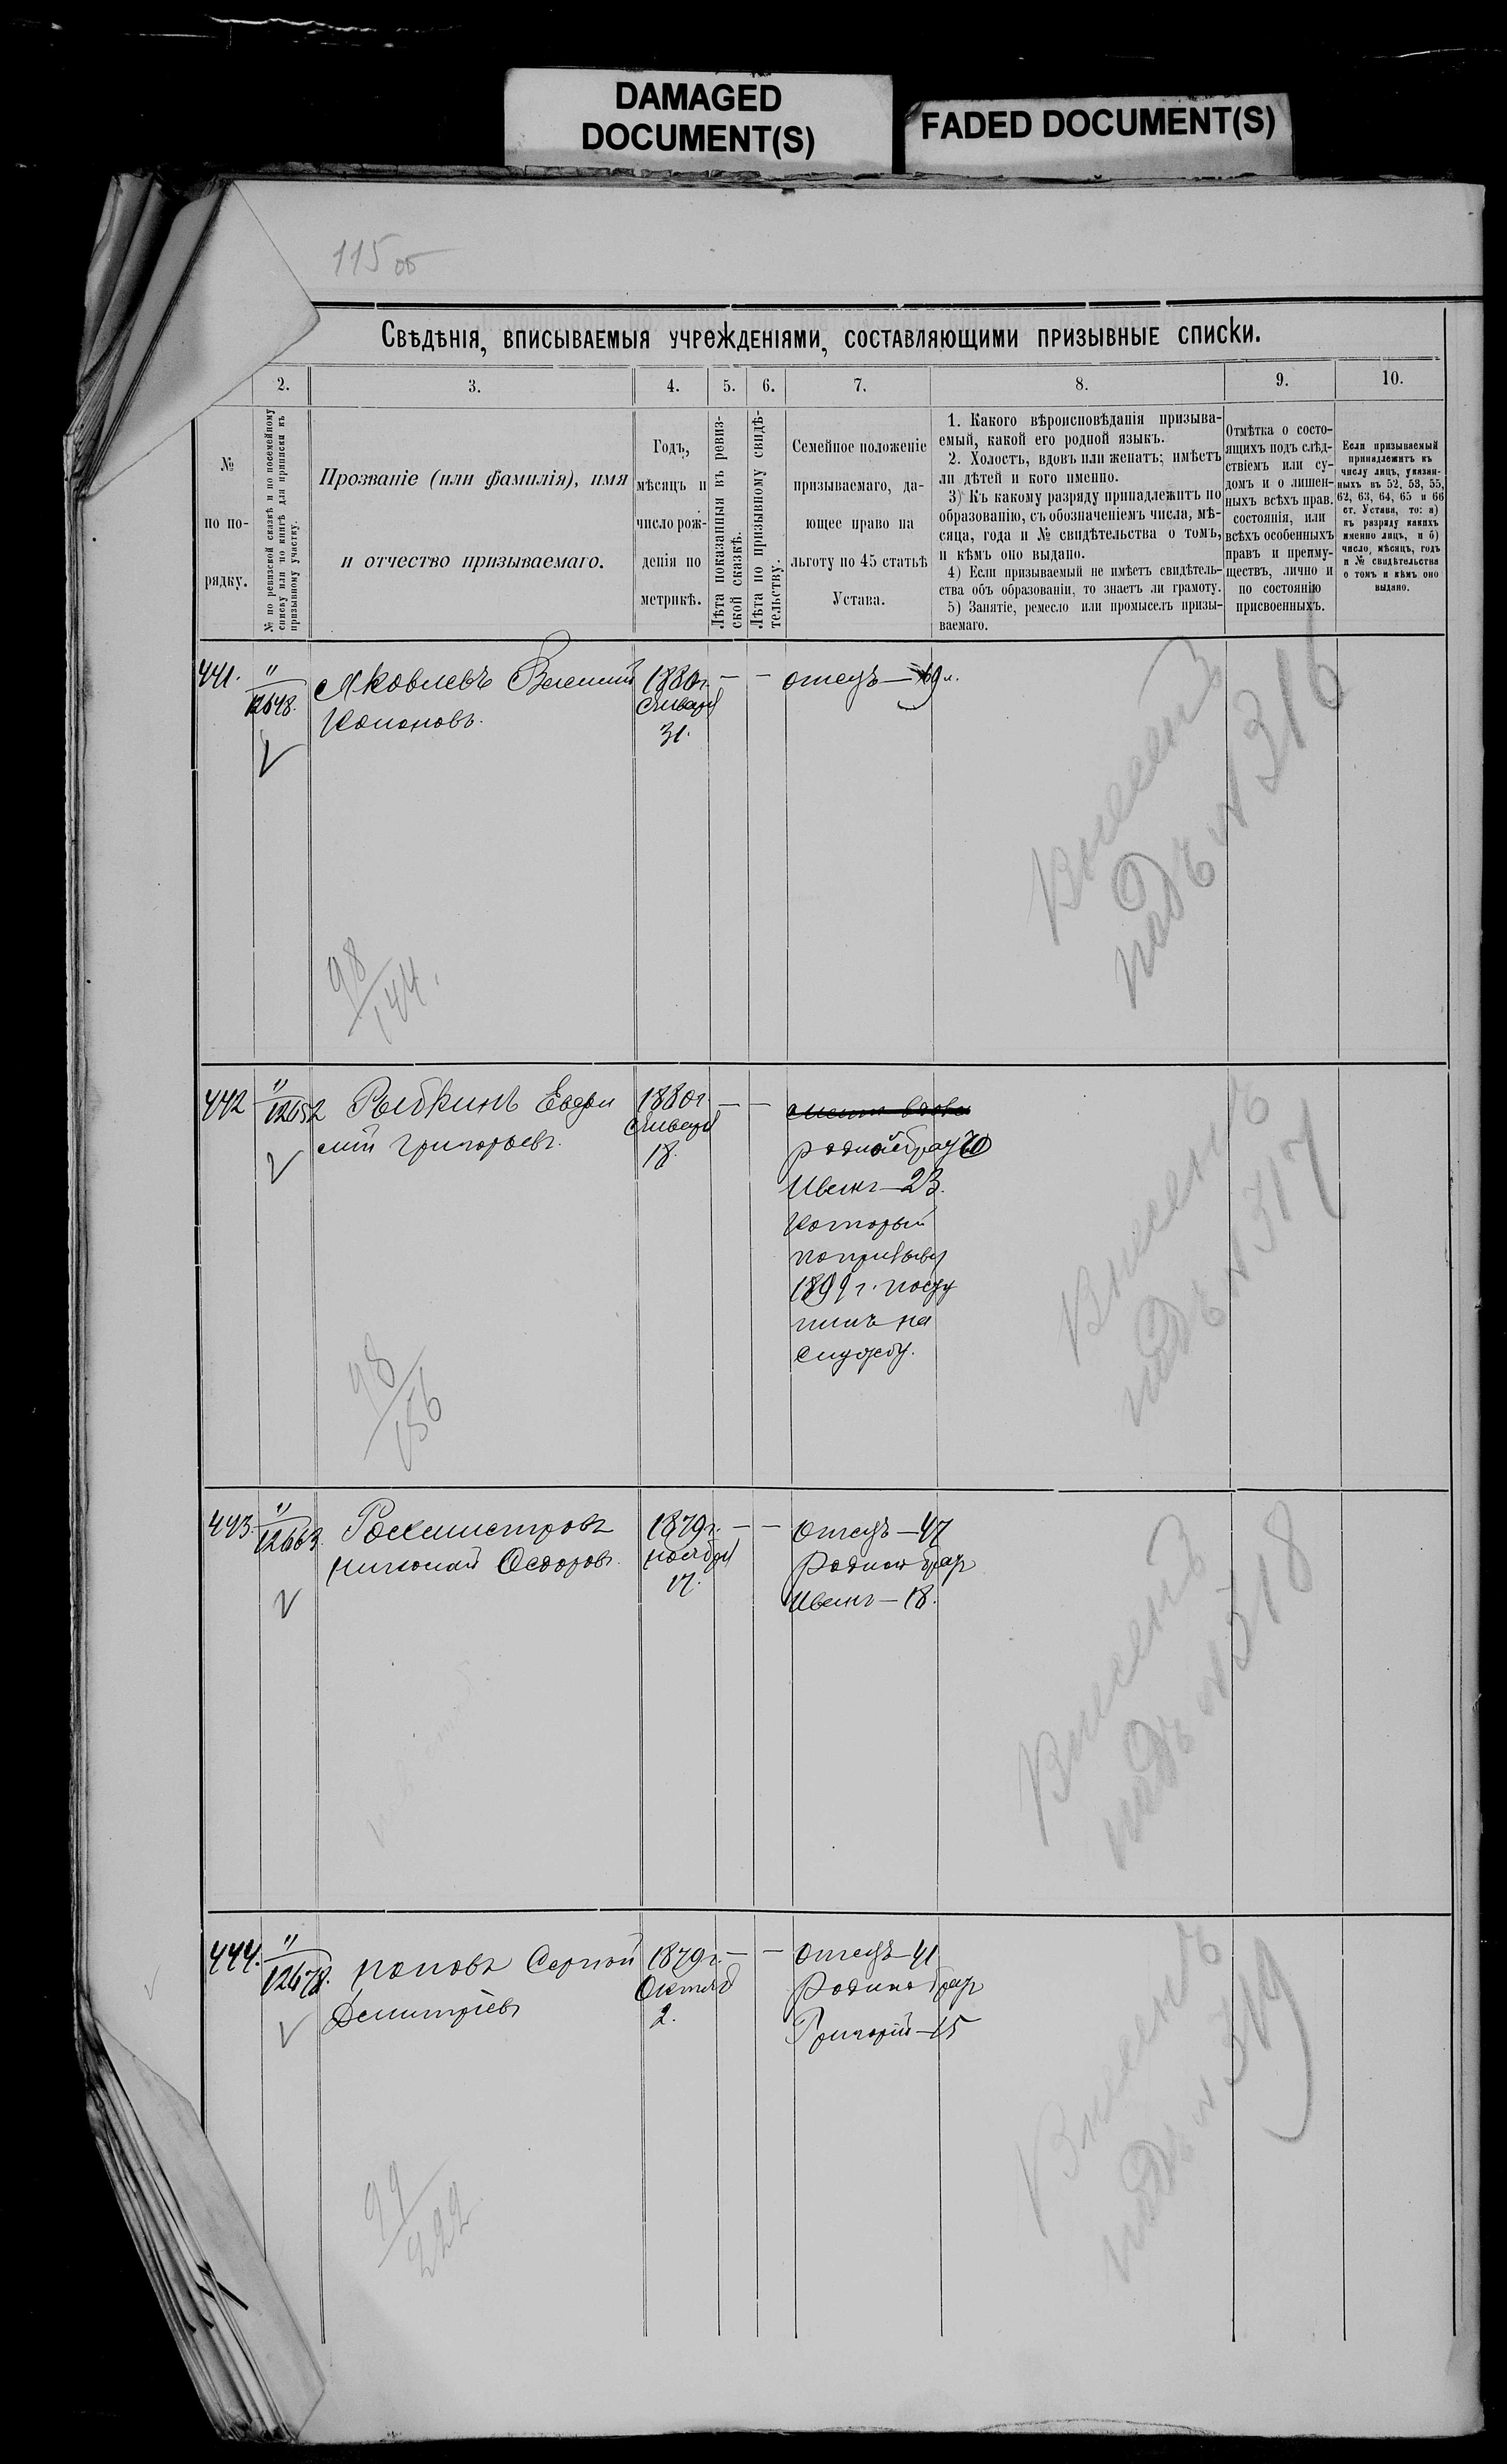 DAMAGED
DOCUMENT(S)
FADED DOCUMENT(S)
115 об
Свѣдѣнія, вписываемыя учрежденіями, составляющими призывные списки.
2. 3. 4. 5. 6. 7. 8. 9. 10.
№
по по-
рядку.
№ по ревизской сказкѣ и по посемейному
списку или по книгѣ для приписки къ
призывному участку.
Прозваніе (или фамилія), имя
и отчество призываемаго.
Годъ,
мѣсяцъ и
число рож-
денія по
метрикѣ.
Лѣта показанныя въ ревиз-
ской сказкѣ.
Лѣта по призывному свидѣ-
тельству.
Семейное положеніе
призываемаго, да-
ющее право на
льготу по 45 статьѣ
Устава.
1. Какого вѣроисповѣданія призыва-
емый, какой его родной языкъ.
2. Холостъ, вдовъ или женатъ; имѣетъ
ли дѣтей и кого именно.
3) Къ какому разряду принадлежитъ по
образованію, съ обозначеніемъ числа, мѣ-
сяца, года и № свидѣтельства о томъ,
и кѣмъ оно выдано.
4) Если призываемый не имѣетъ свидѣтель-
ства объ образованіи, то знаетъ ли грамоту.
5) Занятіе, ремесло или промыселъ призы-
ваемаго.
Отмѣтка о состо-
ящихъ подъ слѣд-
ствіемъ или су-
домъ и о лишен-
ныхъ всѣхъ прав.
состоянія, или
всѣхъ особенныхъ
правъ и преиму-
ществъ, лично и
по состоянію
присвоенныхъ.
Если призываемый
принадлежитъ къ
числу лицъ, указан-
ныхъ въ 52, 53, 55,
62, 63, 64, 65 и 66
ст. Устава, то: а)
къ разряду какихъ
именно лицъ, и б)
число, мѣсяцъ, годъ
и № свидѣтельства
о томъ и кѣмъ оно
выдано.
441. " 12648. Яковлевъ 1880г. — — отецъ —
Кононовъ. Января
31.
Внесенъ
подъ № 316
98/144.
442 " 12652 Рыбкинъ Евфи 1880г. — —
мій Григорьевъ. Января родной брат
18. Иванъ — 23.
который
по призыву
1899 г. посту
пилъ на
службу.
Внесенъ
подъ № 317
98/156
443. " 12663. Роскмистровъ 1879г. — — Отецъ — 47
Николай Ѳедоровъ. Ноября Родной брат
17. Иванъ — 18.
Внесенъ
подъ № 318
444. " 12678. Поповъ Сергѣй 1879г. — — Отецъ — 41
Дмитріевъ Октяб Родной брат
2. Григорій — 15
Внесенъ
подъ № 319
99/222